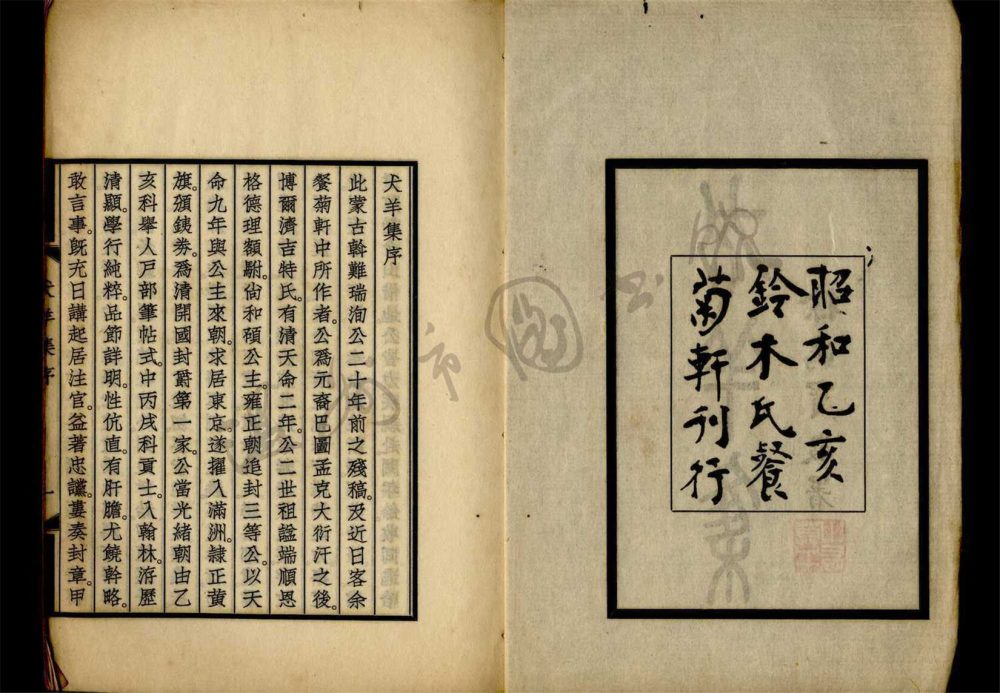 昭和乙亥
鈴木氏餐
菊軒刊行
犬羊集序
此蒙古斡難瑞洵公二十年前之殘稿。及近日客余
餐菊軒中所作者。公爲元裔巴圖孟克大衍汗之後。
博爾濟吉特氏。有清天命二年。公二世祖諡端順恩
格德理額駙。尙和碩公主。雍正朝追封三等公。以天
命九年與公主來朝。求居東京。遂擢入滿洲。隸正黃
旗。頒銕券。爲清開國封爵第一家。公當光緒朝由乙
亥科舉人戸部筆帖式。中丙戌科貢士。入翰林。洊歷
清顯。學行純粹。品節詳明。性伉直。有肝膽。尤饒幹略。
敢言事。旣充日講起居注官。益著忠讜。婁奏封章。甲
犬羊集序
一